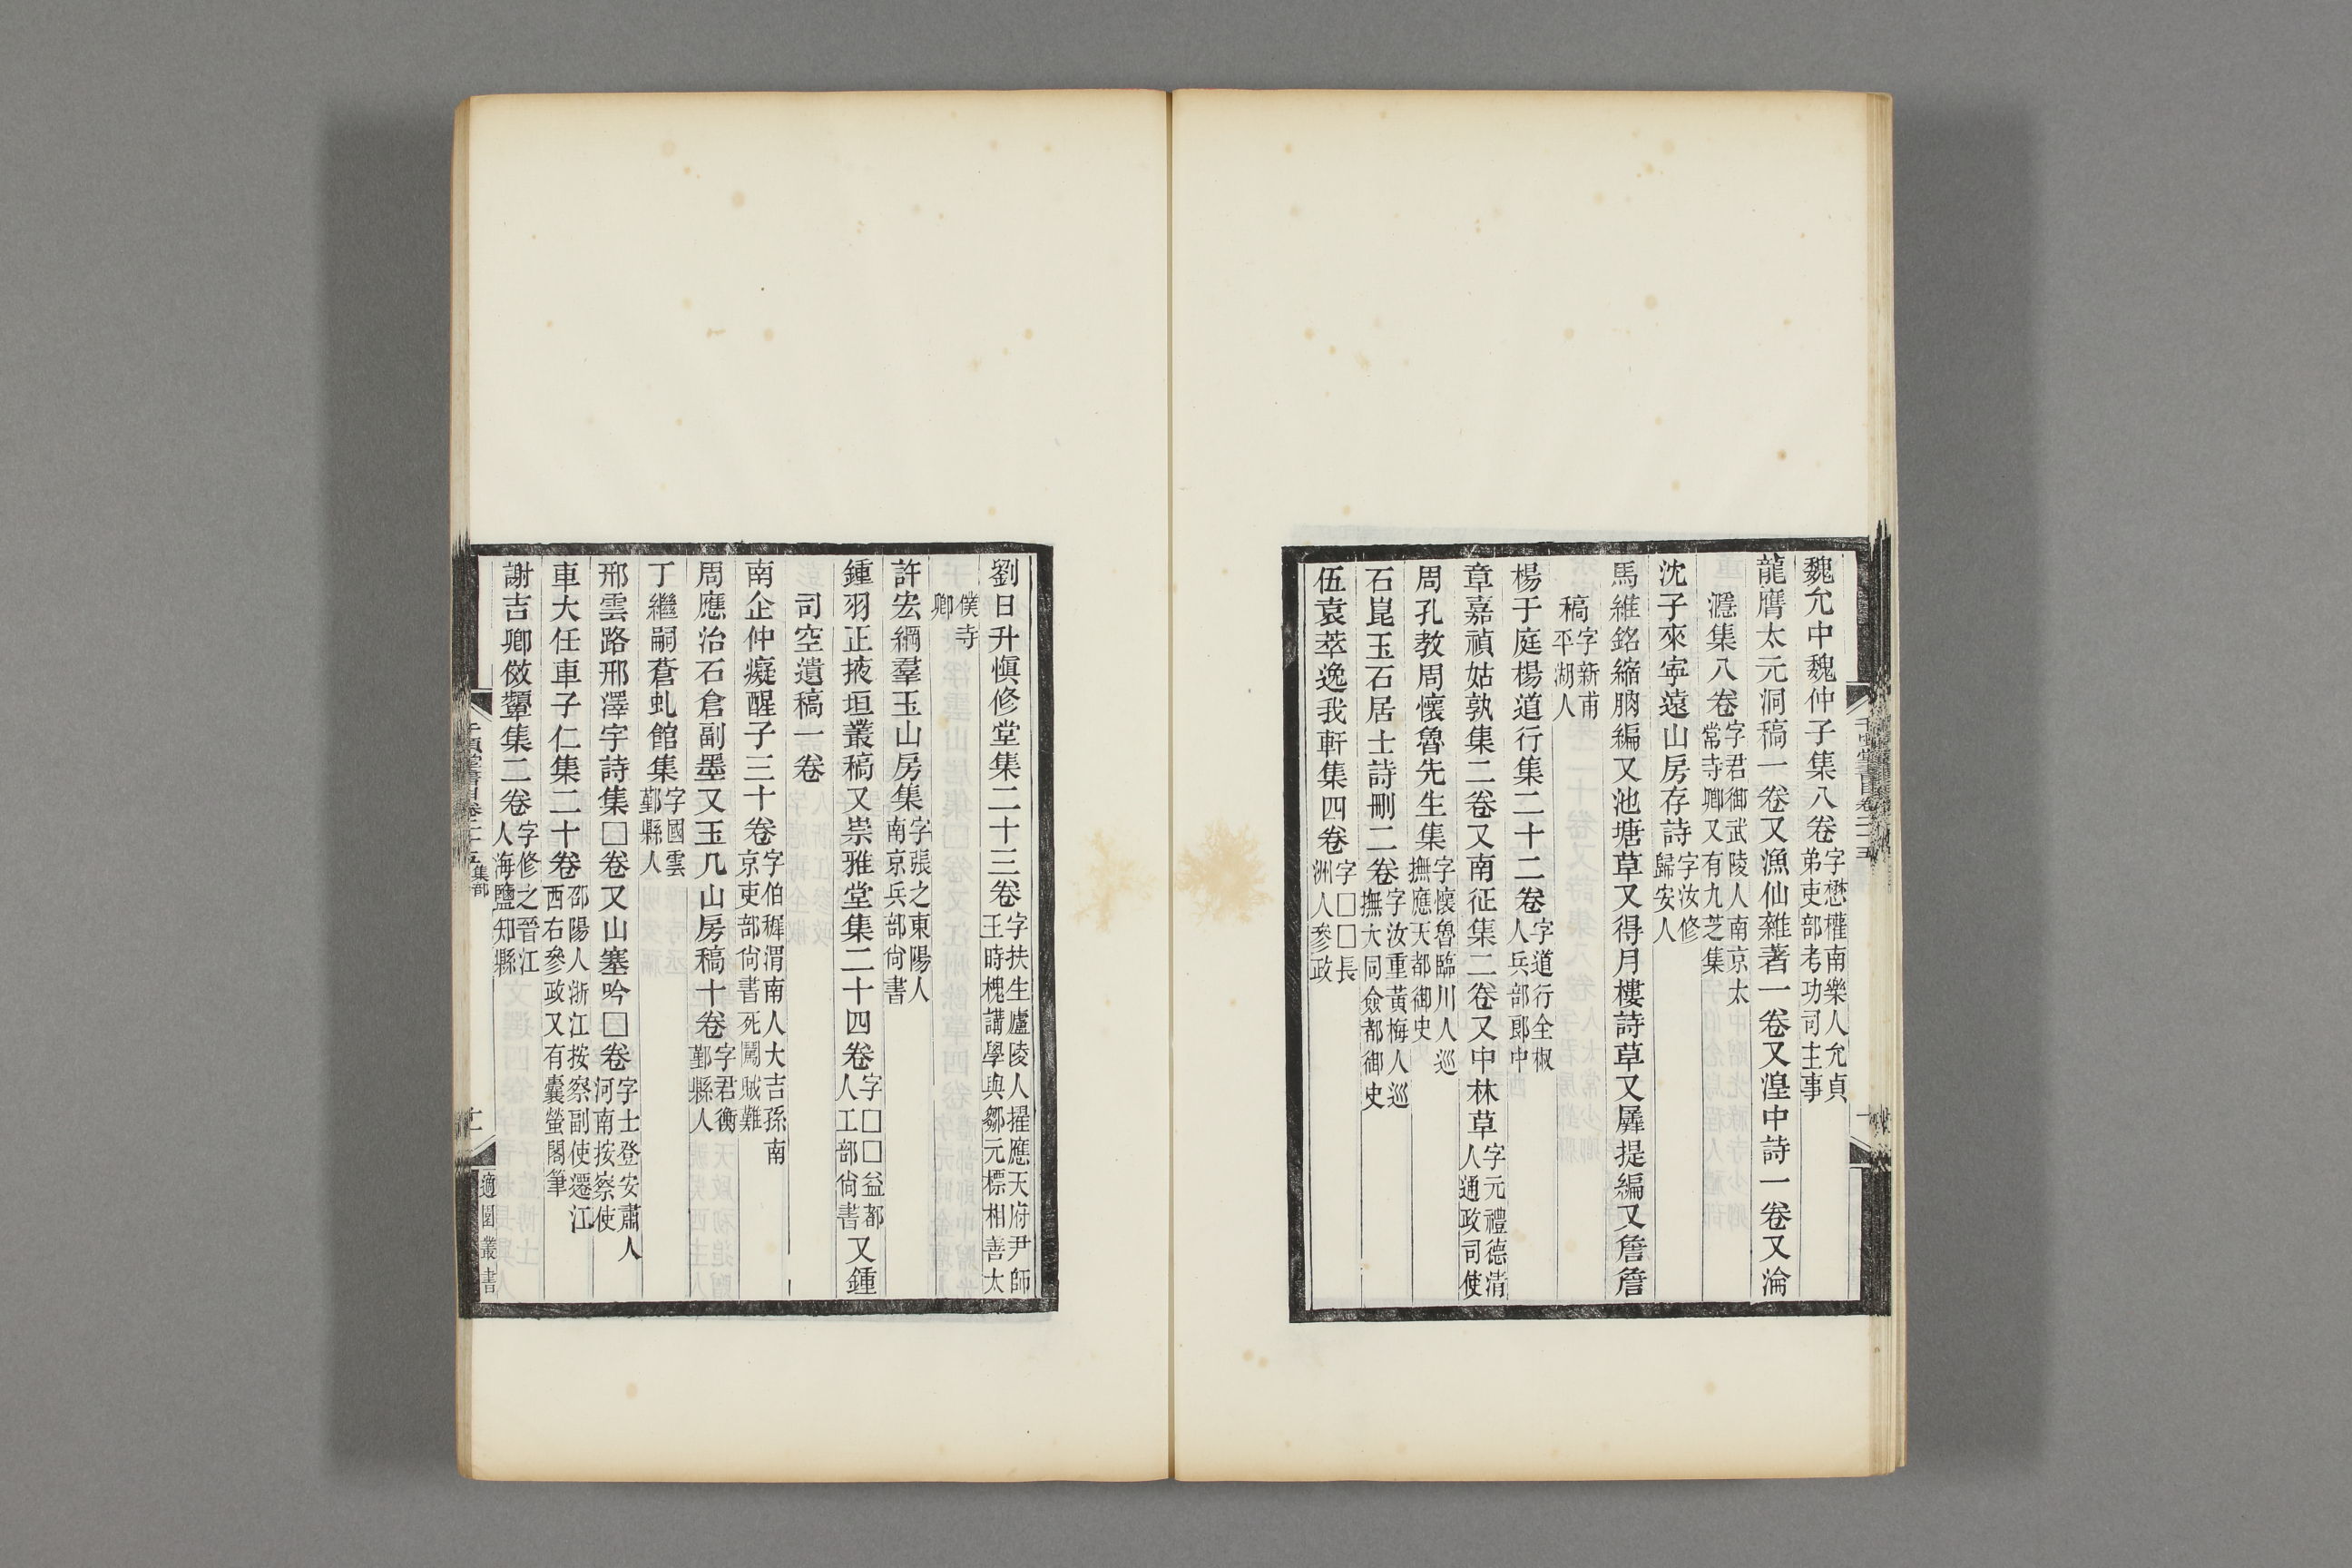 魏允中魏仲子集八卷字懋權南樂人允貞弟吏部考功司主事
龍膺太元洞稿一卷又漁仙雜著一卷又湟中詩一卷又淪
㶏集八卷字君御武陵人南京太常寺卿又有九芝集
沈子來寧遠山房存詩字汝修歸安人
馬維銘縮朒編又池塘草又得月樓詩草又羼提編又詹詹
稿字新甫平湖人
楊于庭楊道行集二十二卷字道行全椒人兵部郎中
章嘉禎姑孰集二卷又南征集二卷又中林草字元禮德清人通政司使
周孔教周懷魯先生集字懷魯臨川人巡撫應天都御史
石崑玉石居士詩刪二卷字汝重黃梅人巡撫大同僉都御史
伍袁萃逸我軒集四卷字□□長洲人參政
劉日升愼修堂集二十三卷字扶生廬陵人擢應天府尹師王時槐講學與鄒元標相善太
僕寺卿
許宏綱羣玉山房集字張之東陽人南京兵部尙書
鍾羽正掖垣叢稿又崇雅堂集二十四卷字□□益都人工部尙書又鍾
司空遺稿一卷
南企仲癡醒子三十卷字伯穉渭南人大吉孫南京吏部尙書死闖賊難
周應治石倉副墨又玉几山房稿十卷字君衡鄞縣人
丁繼嗣蒼虬館集字國雲鄞縣人
邢雲路邢澤宇詩集□卷又山塞吟□卷字士登安肅人河南按察使
車大任車子仁集二十卷邵陽人浙江按察副使遷江西右參政又有囊螢閣筆
謝吉卿傚顰集二卷字修之晉江人海鹽知縣
千頃堂書目卷二十五集部
十一
適園叢書